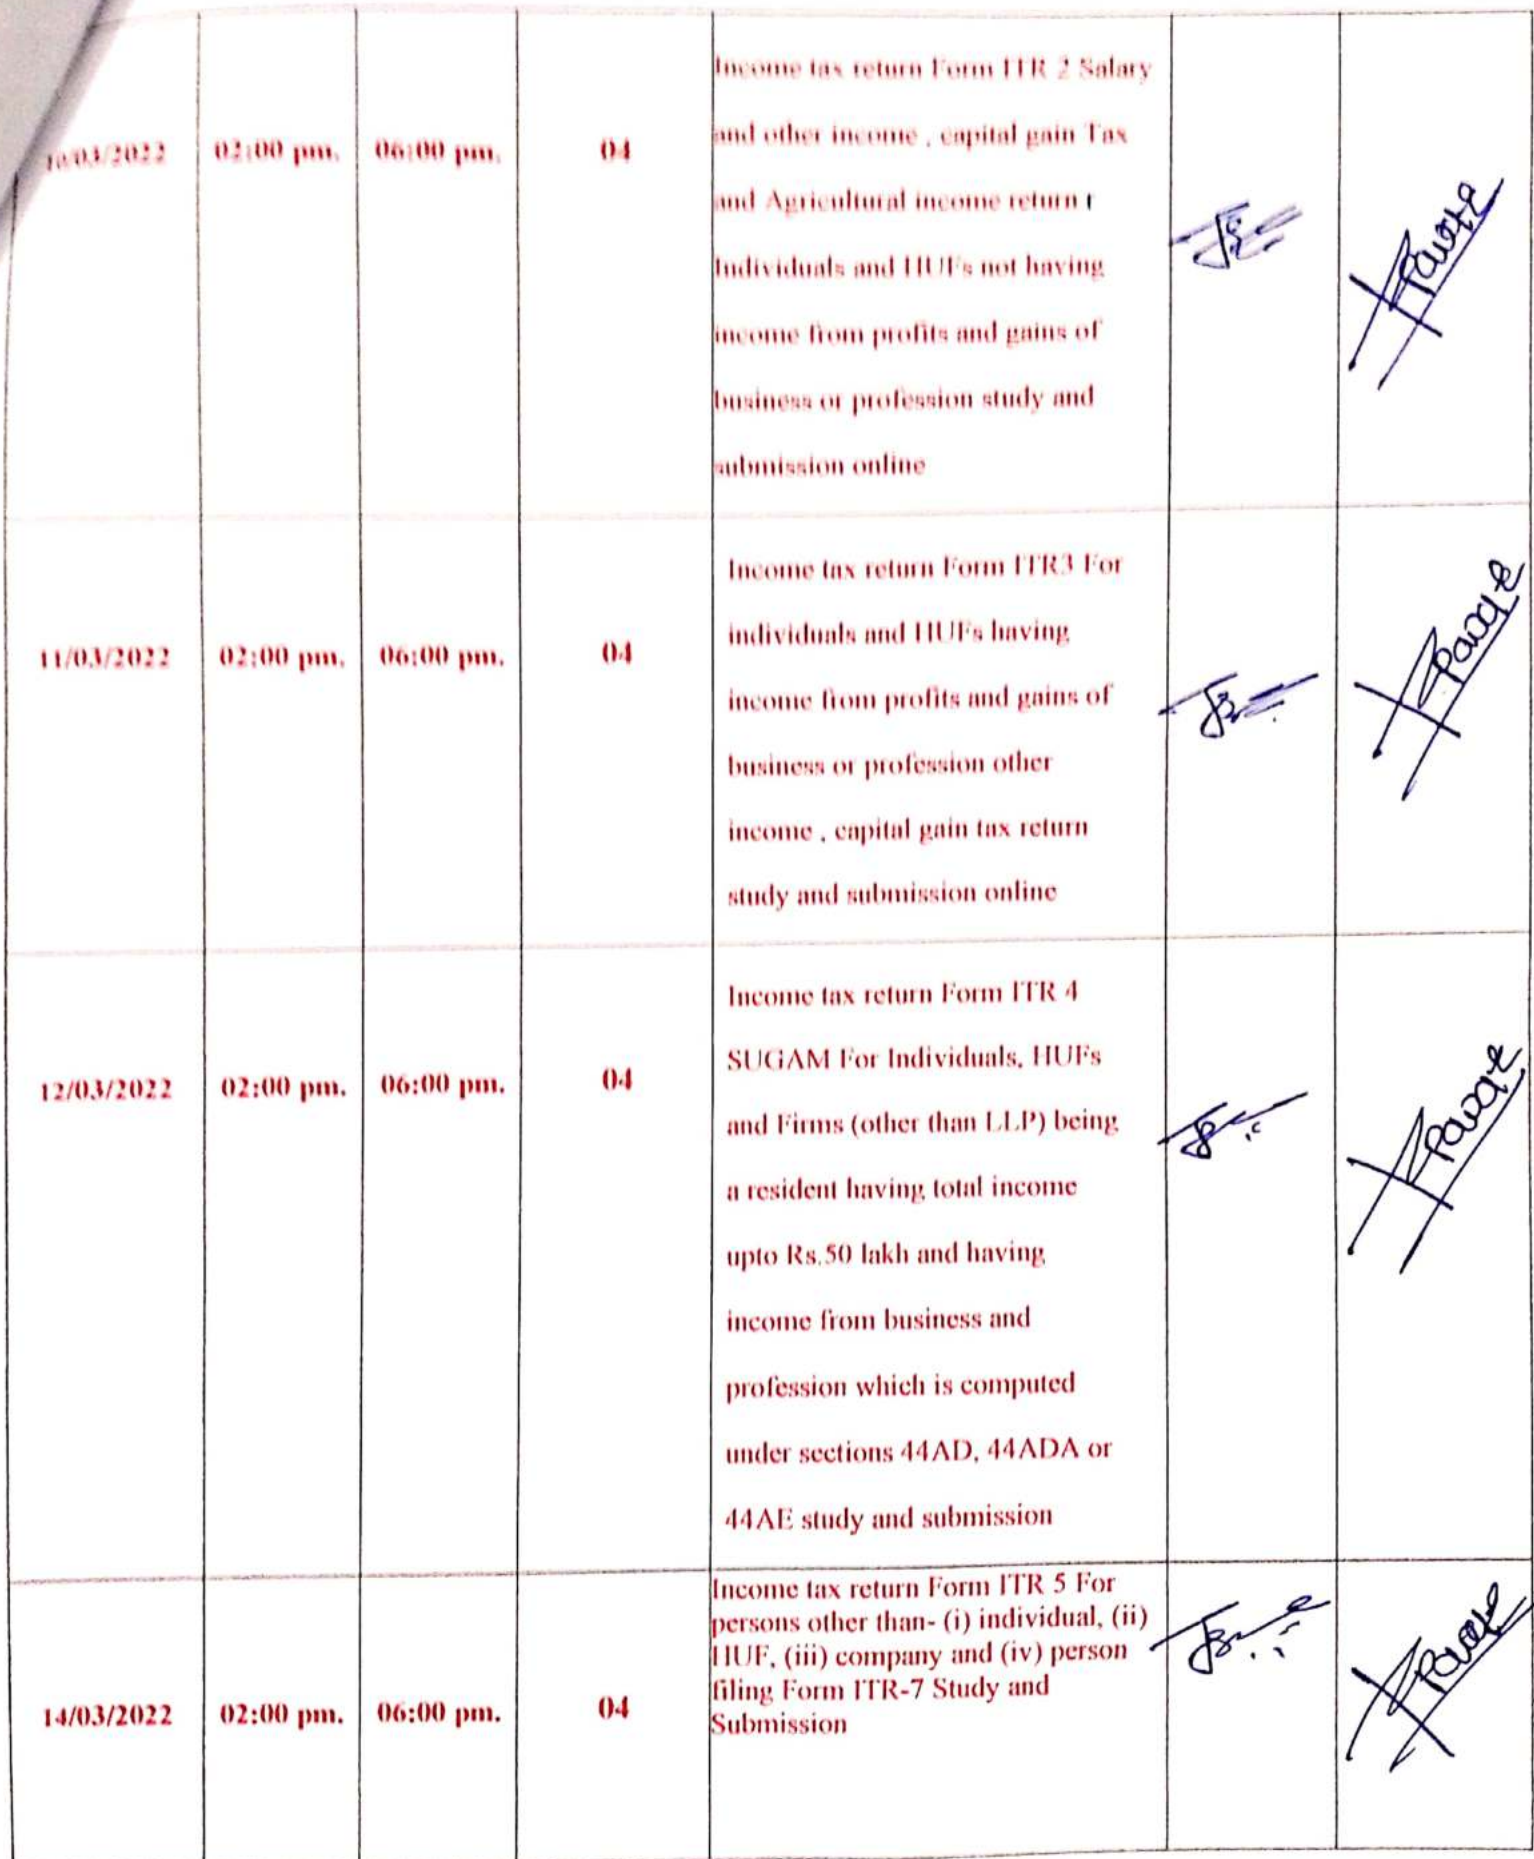 10/03/2022 02:00 pm. 06:00 pm. 04
Income tax return Form ITR 2 Salary
and other income , capital gain Tax
and Agricultural income return r
Individuals and HUFs not having
income from profits and gains of
business or profession study and
submission online
11/03/2022 02:00 pm. 06:00 pm. 04
Income tax return Form ITR3 For
individuals and HUFs having
income from profits and gains of
business or profession other
income , capital gain tax return
study and submission online
12/03/2022 02:00 pm. 06:00 pm. 04
Income tax return Form ITR 4
SUGAM For Individuals, HUFs
and Firms (other than LLP) being
a resident having total income
upto Rs.50 lakh and having
income from business and
profession which is computed
under sections 44AD, 44ADA or
44AE study and submission
14/03/2022 02:00 pm. 06:00 pm. 04
Income tax return Form ITR 5 For
persons other than- (i) individual, (ii)
HUF, (iii) company and (iv) person
filing Form ITR-7 Study and
Submission